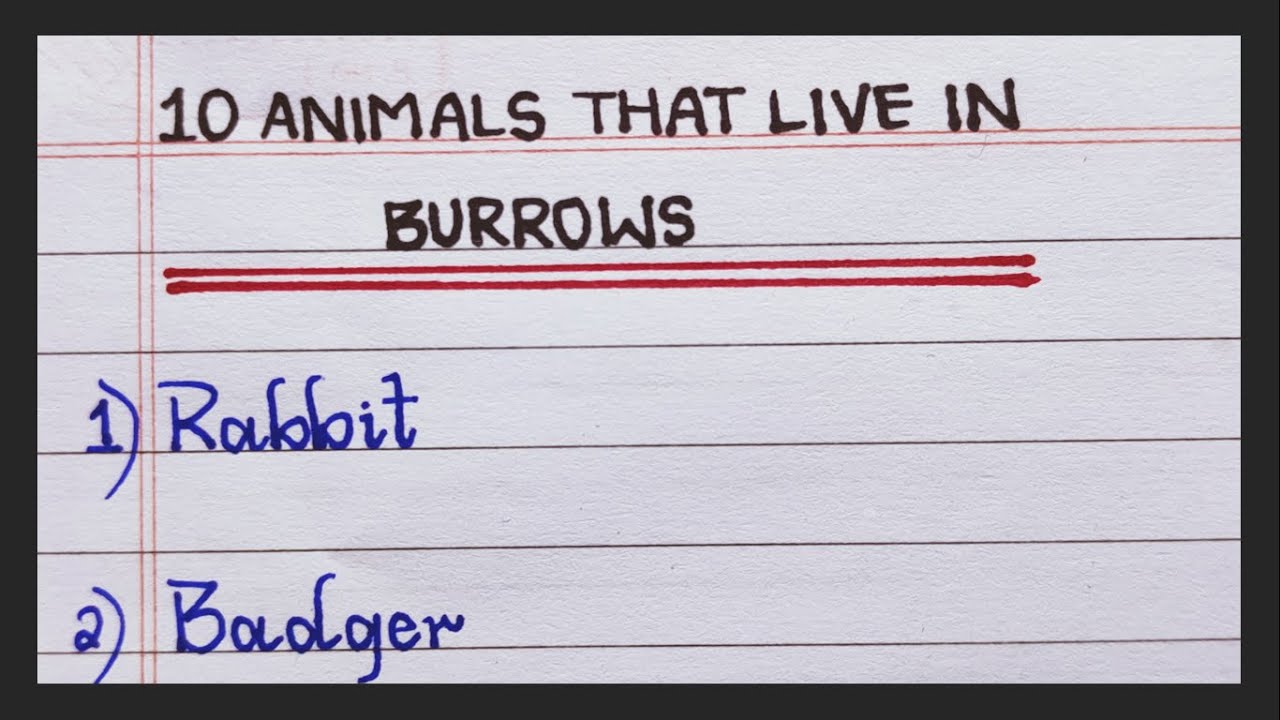 10 ANIMALS THAT LIVE IN
BURROWS
1) Rabbit
2) Badger